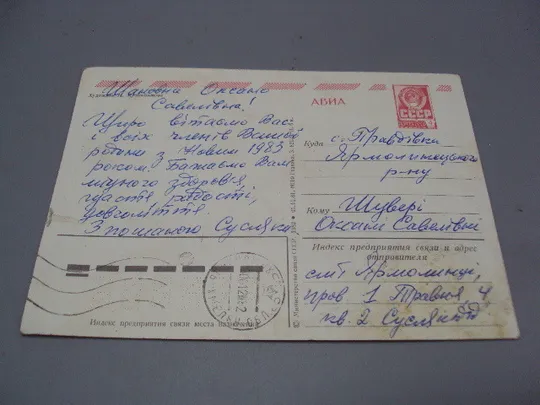 Шановна Оксано
Савелівна!
Щиро вітаємо Вас
і всіх членів Вашої
родини з Новим 1983
роком! Бажаємо Вам
міцного здоров'я,
щастя, радості,
довголіття.
З пошаною Сусляки
АВИА
СССР
Куда с. Правдівка
Ярмолинецького
р-ну
Кому Шувері
Оксані Савелівні
Индекс предприятия связи и адрес
отправителя
смт Ярмолинці,
пров 1 Травня, 4
кв. 2
Индекс предприятия связи места назначения
© Министерство связи СССР